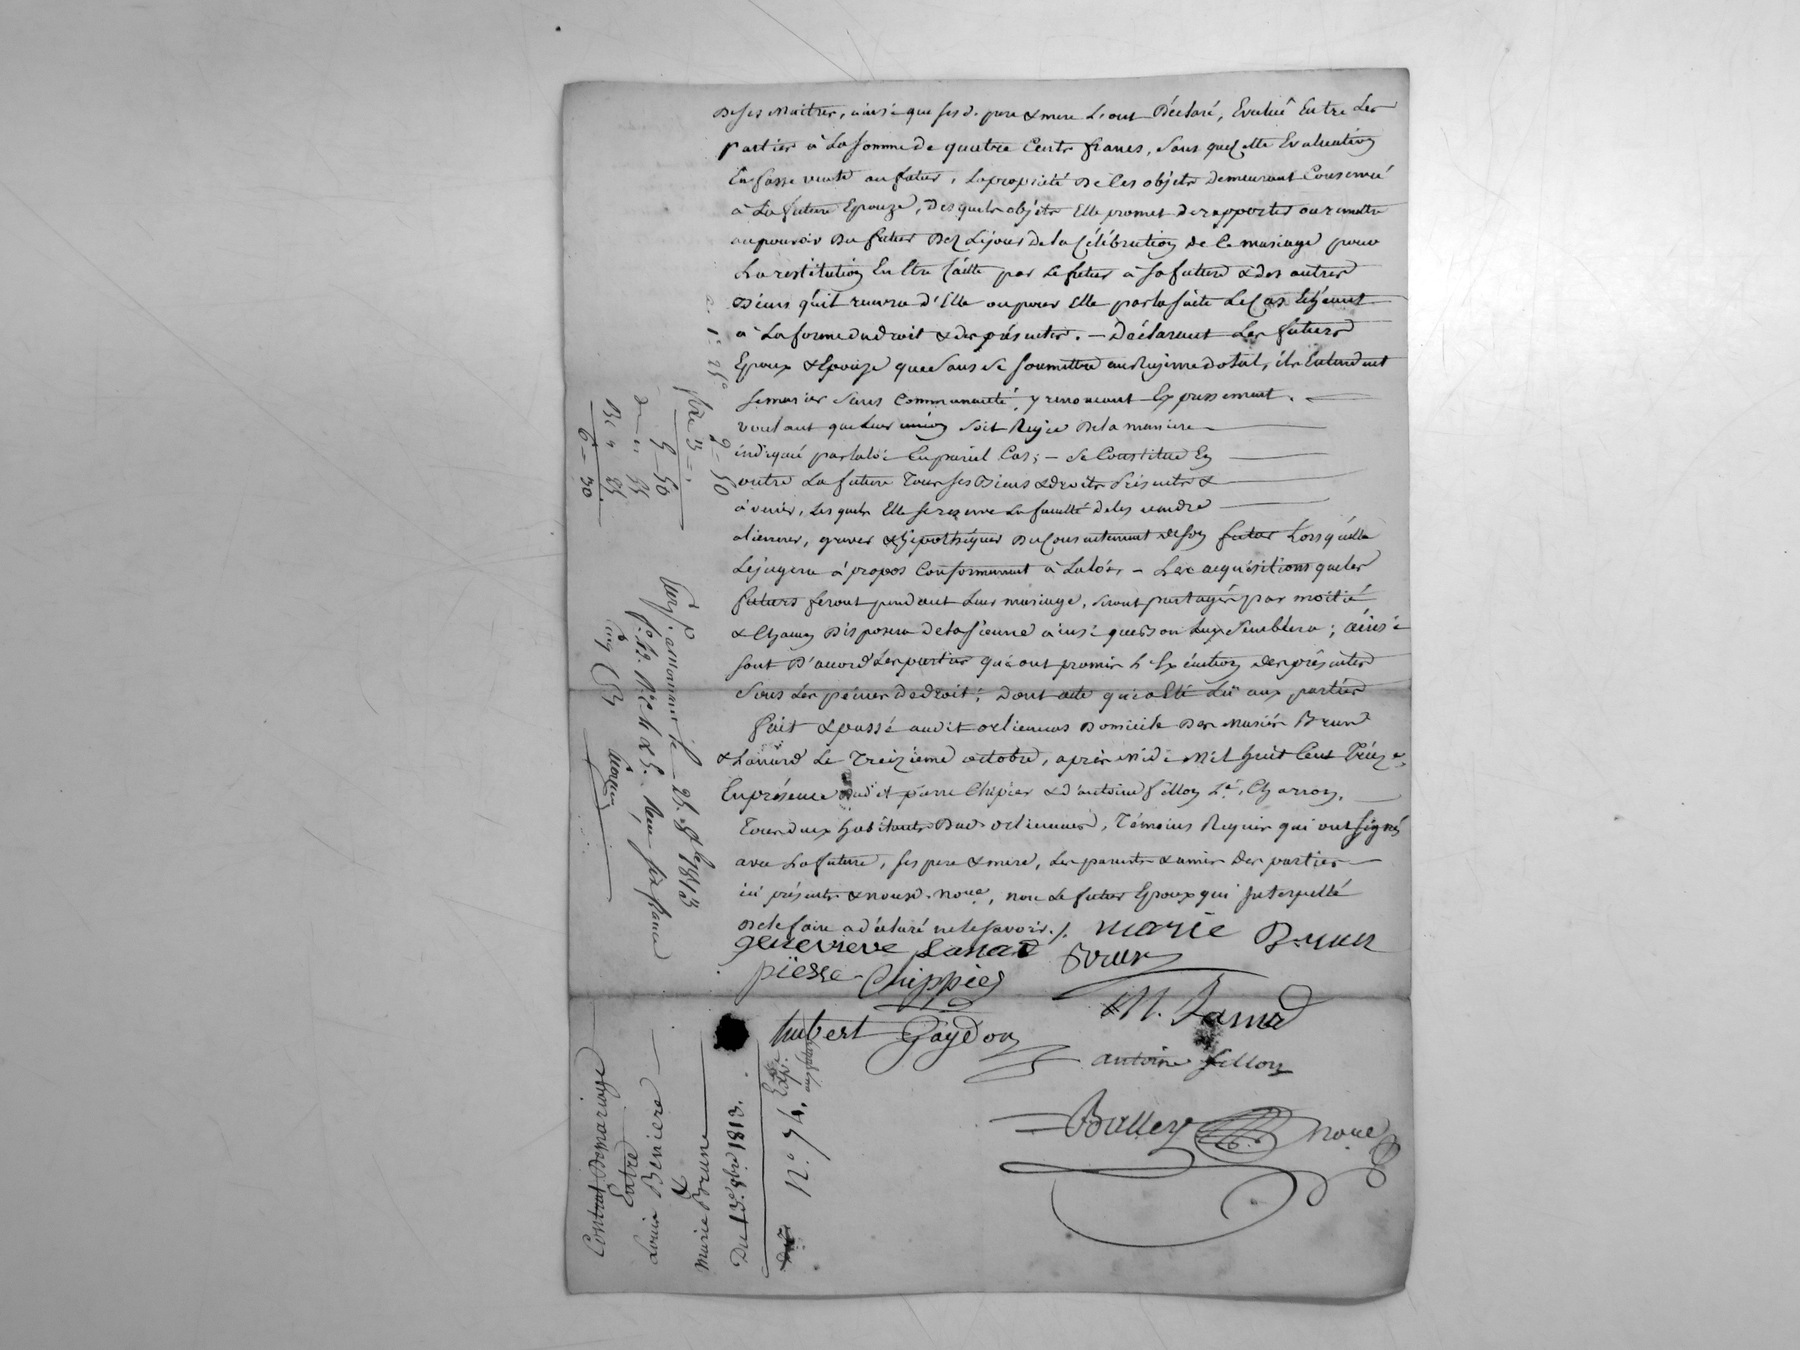 De ses Maitres, ainsi que ses d. pere & mere L'ont Déclaré, Evalué Entre Les
parties à La somme de quatre Cents francs, Sans que Cette Evaluation
En fasse vente au futur, La propriété De Ces objets Demeurant Conservée
à La future Epouze, Desquels objets Elle promet de rapporter ou remettre
au pouvoir Du futur Dez Le jour De la Célébration de Ce mariage pour
La restitution En Etre faitte par Le futur à Sa future & des autres
Biens qu'il recevra d'Elle ou pour Elle par la suite Le Cas Echeant
à La forme du droit & des présentes. — Déclarant Les futurs
Epoux & Epouze que Sans Se Soumettre au Régime Dotal, ils Entendent
Se marier Sans Communauté, y renoncant Expressement.
voulant que Leur union Soit Régie De la maniere
indiquée par la loi En pareil Cas; — Se Constitue En
outre La future Tous ses Biens & droits présents &
à venir, Lesquels Elle se rezerve La faculté de les vendre
alienner, graver & hipothéquer Du Consentement de son futur Lorsqu'elle
Le jugera à propos Conformement à La loi, — Les acquisitions que les
futurs feront pendant Leur mariage, Seront partagés par moitié
& Chacun Disposera de la Sienne ainsi que Bon Lui Semblera; ainsi
Sont D'accord Les parties qui ont promis L'Exécution des présentes
Sous Les peines de droit; Dont acte qui a Eté Lû aux parties
fait & passé audit orlienas Domicile Des Mariés Brun
& Lanard Le Treizieme octobre, après midi Mil huit Cent Treize
En présence dudit pierre Chipier & d'antoine fillon Charron,
Tous deux habitants Dud. orlienas, Témoins Requis qui ont signé
avec La future, ses pere & mere, Les parents & amis Des parties
ici présents & nousd. noue, non Le futur Epoux qui Interpellé
De le faire a déclaré ne le savoir ./. marie Brun
genevieve Lanard Brun
pierre Chippier
M. Lanard
hubert Gaydon
antoine fillon
Balley noue
a 1f 25c
2 - 50
fixe 3 =
5 - 50
De 55
6 - 30
Enrg. à mornant le 25. 8bre 1813
Contrat De mariage
Entre
Louis Beniere
&
Marie Brune
Du 13e 8bre 1813.
N.o 94. Exp.